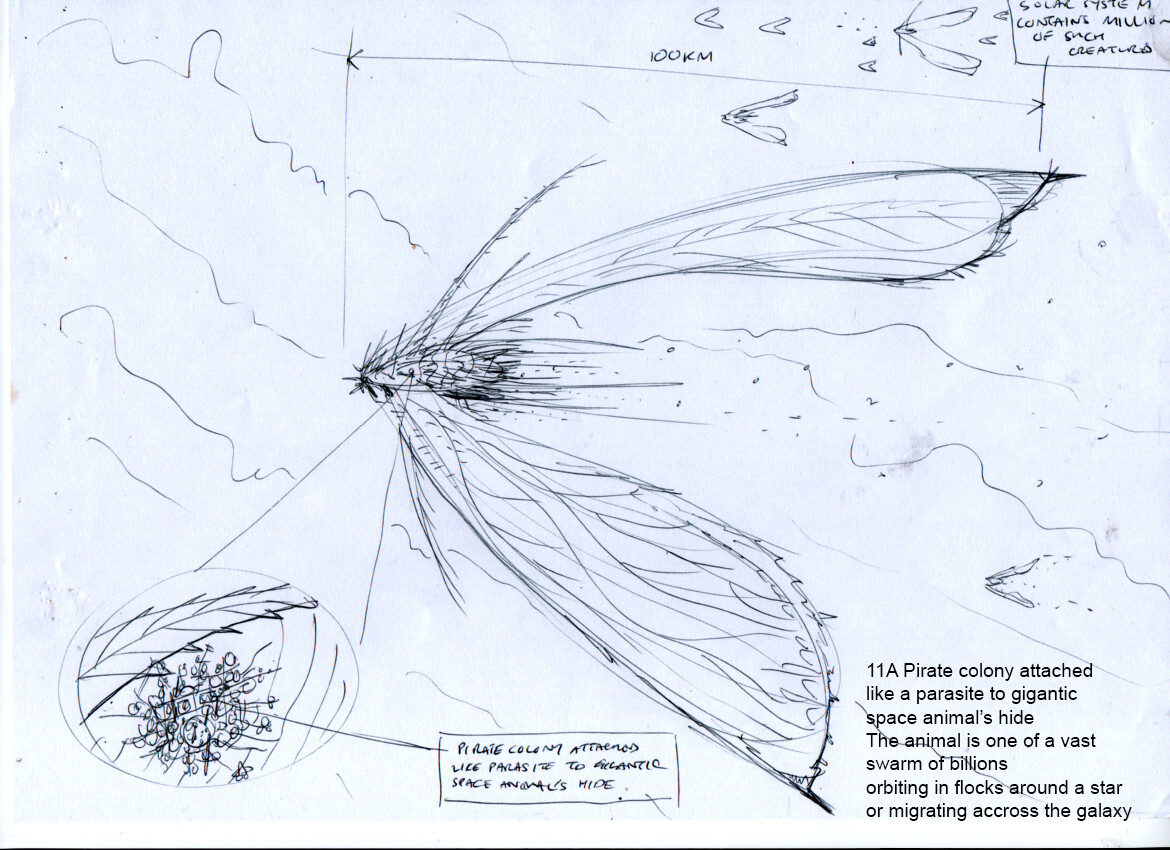 SOLAR SYSTEM
CONTAINS MILLION
OF SUCH
CREATURES
100KM
PIRATE COLONY ATTACHED
LIKE PARASITE TO GIGANTIC
SPACE ANIMAL'S HIDE.
11A Pirate colony attached
like a parasite to gigantic
space animal's hide
The animal is one of a vast
swarm of billions
orbiting in flocks around a star
or migrating accross the galaxy